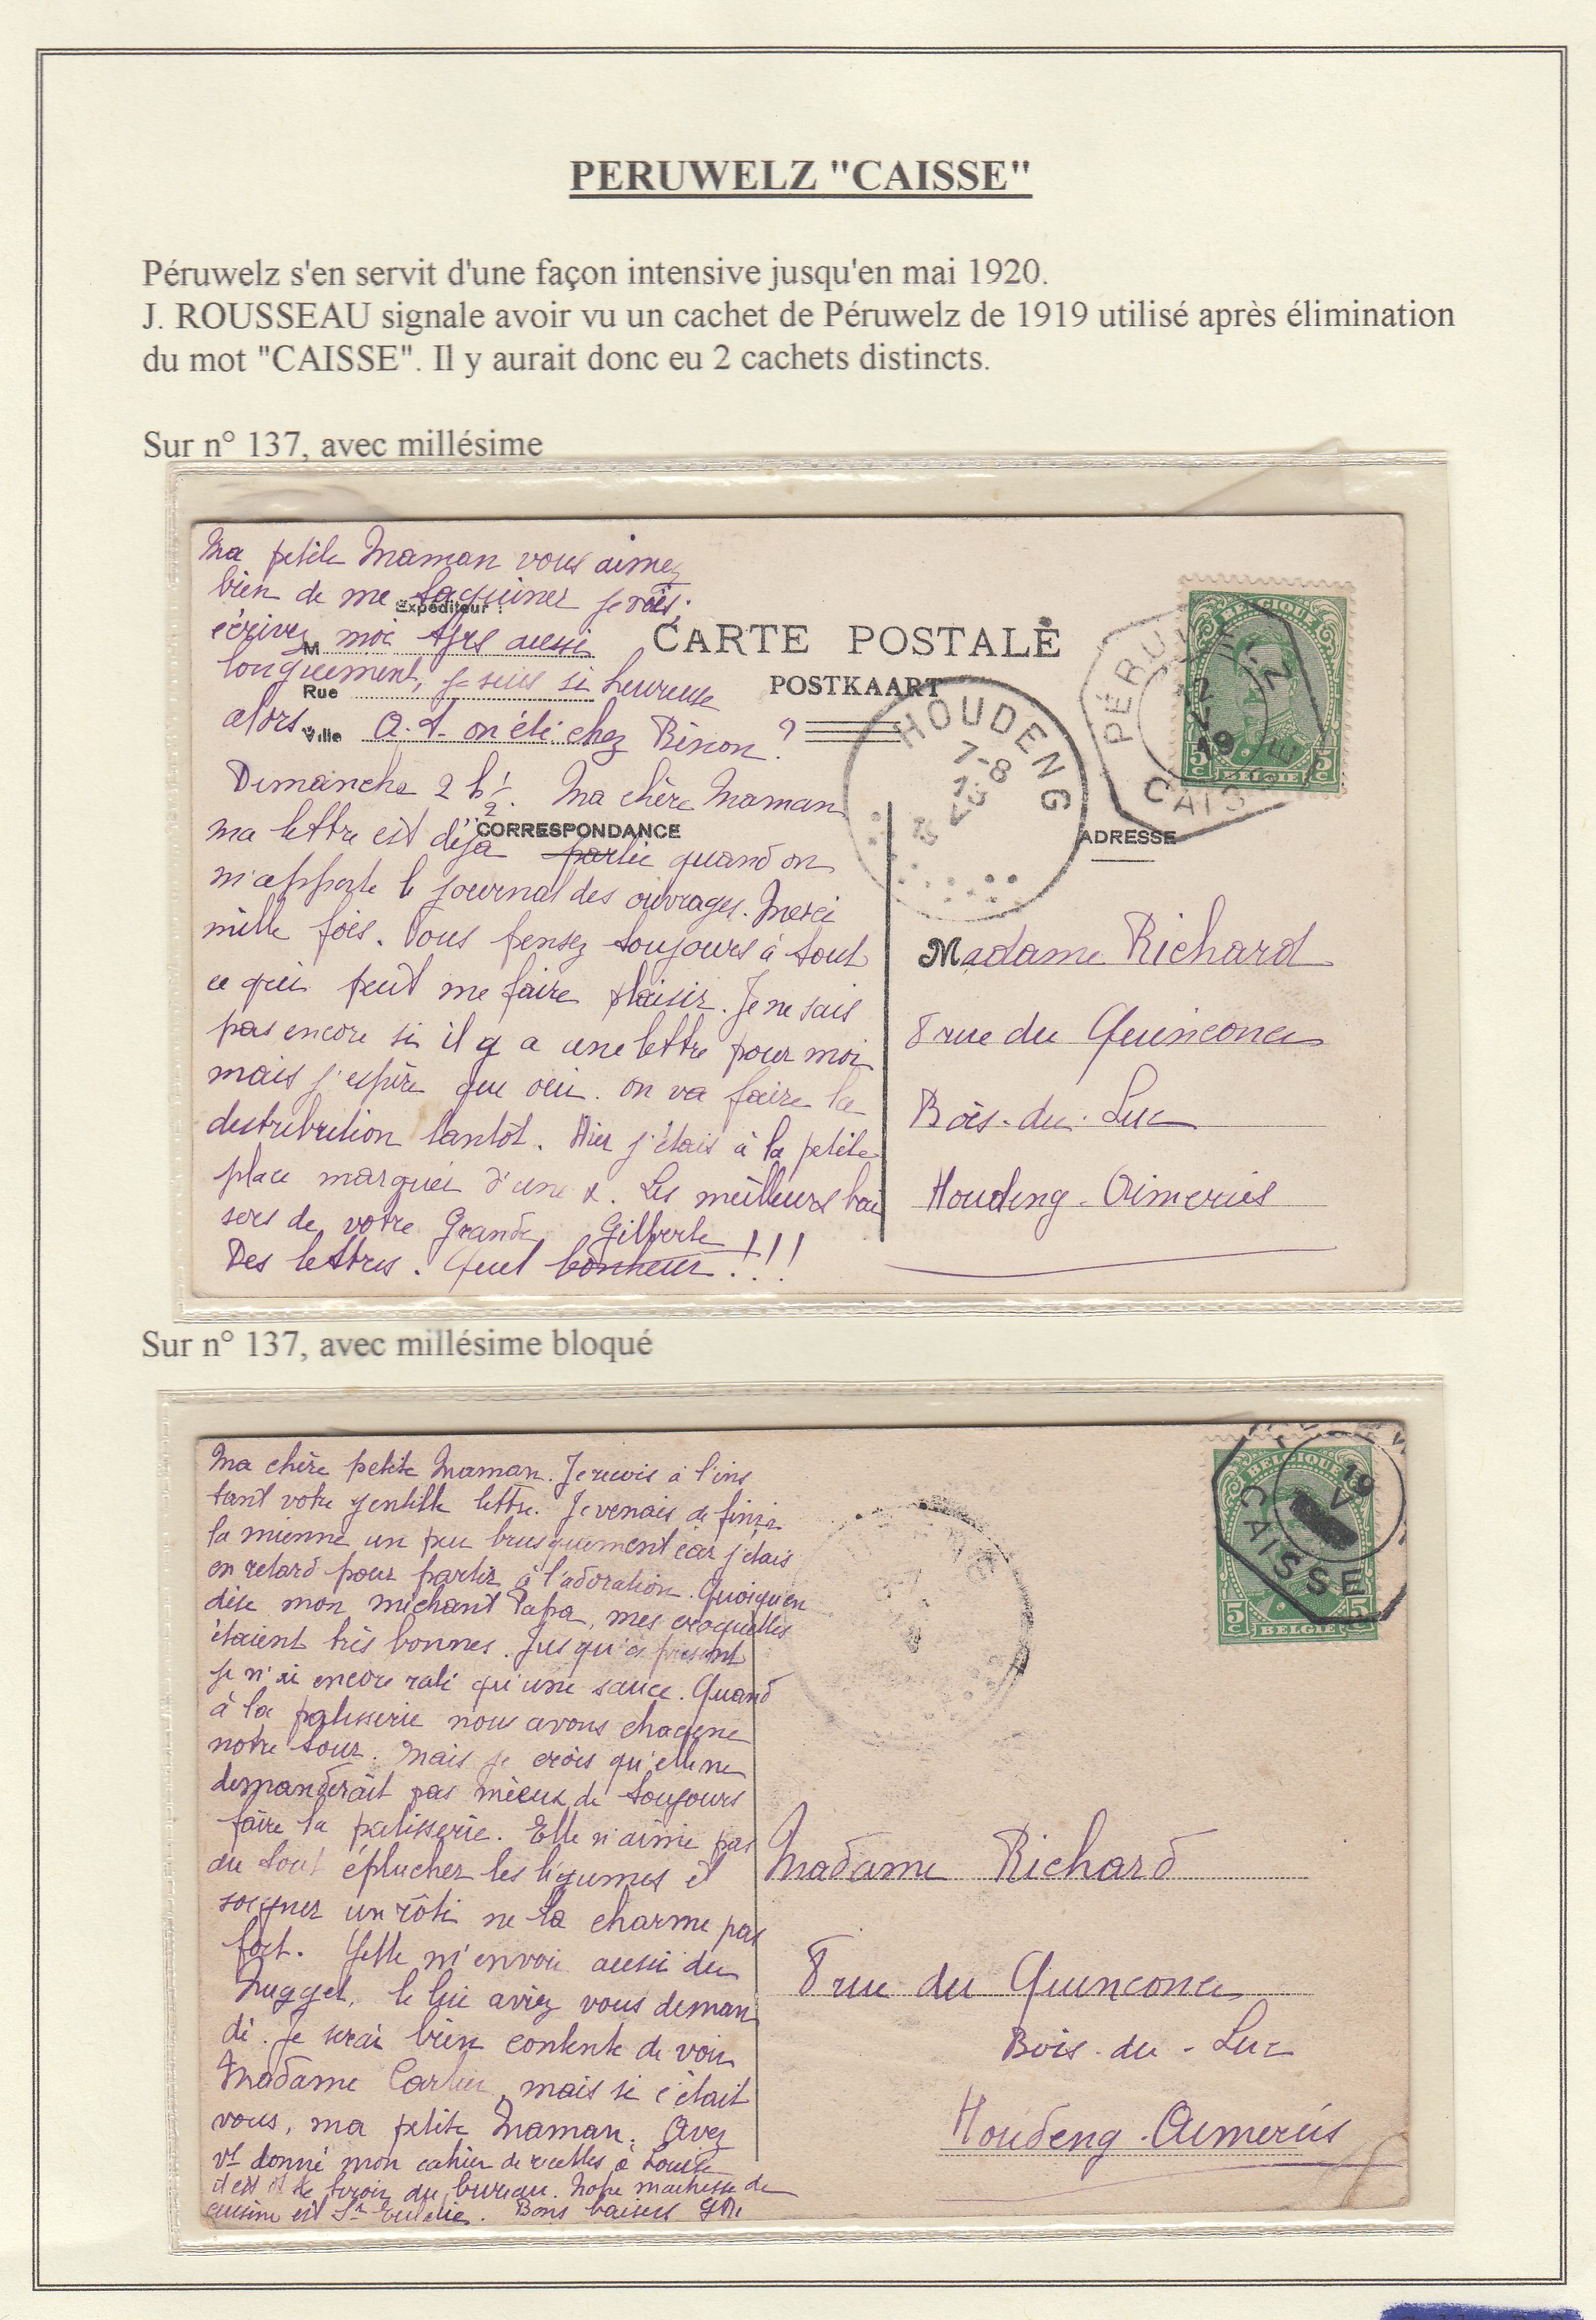 PERUWELZ "CAISSE"
Péruwelz s'en servit d'une façon intensive jusqu'en mai 1920.
J. ROUSSEAU signale avoir vu un cachet de Péruwelz de 1919 utilisé après élimination
du mot "CAISSE". Il y aurait donc eu 2 cachets distincts.
Sur n° 137, avec millésime
Ma petite Maman vous aimez
bien de me taquiner je vois;
Expéditeur :
écrivez moi tjrs aussi
M
longuement, je suis si heureuse
Rue
alors. A-t-on été chez Binon ?
Ville
Dimanche 2 h ½. Ma chère Maman
ma lettre est déjà partie quand on
CORRESPONDANCE
m'apporte le journal des ouvrages. Merci
mille fois. Vous pensez toujours à tout
ce qui peut me faire plaisir. Je ne sais
pas encore si il y a une lettre pour moi
mais j'espère que oui. on va faire la
distribution tantôt. Hier j'étais à la petite
place marquée d'une x. Les meilleurs bai
sers de votre Grande Gilberte
Des lettres. Quel bonheur !!!
CARTE POSTALE
POSTKAART
HOUDENG
7-8
13
V
19
PÉRUWELZ
12
V
19
CAISSE
BELGIQUE
5c BELGIË 5c
ADRESSE
Madame Richard
8 rue du Quinconce
Bois-du-Luc
Houdeng-Aimeries
Sur n° 137, avec millésime bloqué
Ma chère petite Maman. Je reçois à l'ins
tant votre gentille lettre. Je venais de finir
la mienne un peu brusquement car j'étais
en retard pour partir à l'adoration. Quoiqu'en
dise mon méchant Papa, mes croquettes
étaient très bonnes. Jusqu'à présent
je n'ai encore raté qu'une sauce. Quand
à la patisserie nous avons chacune
notre tour. Mais je crois qu'elle ne
demanderait pas mieux de toujours
faire la patisserie. Elle n'aime pas
du tout éplucher les légumes et
soigner un rôti ne la charme pas
fort. Yette m'envoie aussi du
Nugget, le lui aviez vous deman
dé. Je serai bien contente de voir
Madame Carlier, mais si c'était
vous, ma petite Maman. Avez
vs donné mon cahier de recettes à Louise
il est ds le tiroir du bureau. Notre maîtresse de
cuisine est Sr Eulalie. Bons baisers
19
V
CAISSE
BELGIQUE
5c BELGIË 5c
Madame Richard
8 rue du Quinconce
Bois-du-Luc
Houdeng-Aimeries